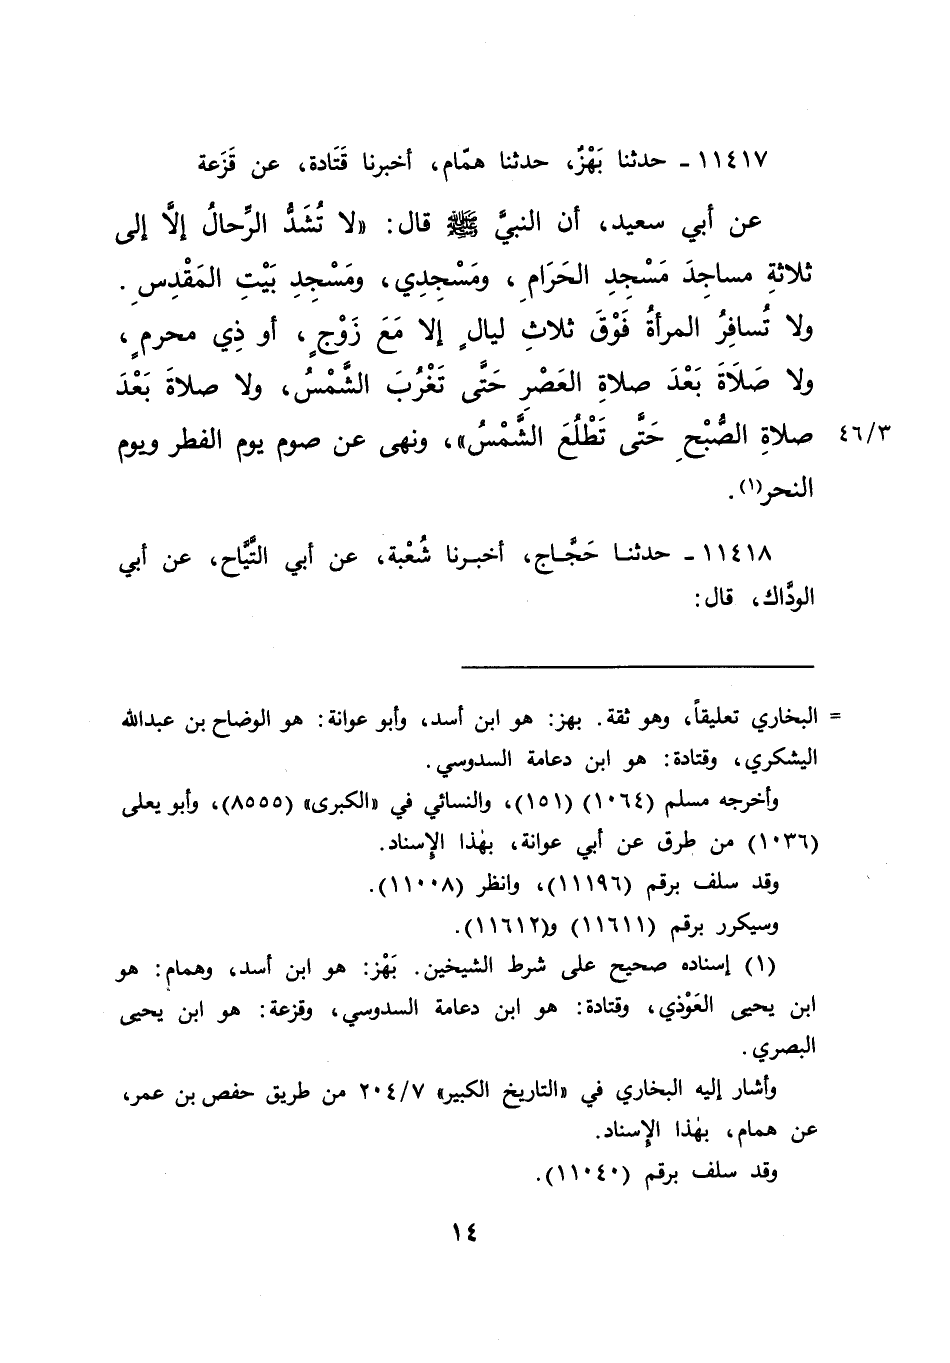 ١١٤١٧ - حدثنا بَهْزٌ، حدثنا همّام، أخبرنا قَتَادة، عن قَزَعة
عن أبي سعيد، أن النبيَّ ﷺ قال: «لا تُشَدُّ الرِّحالُ إلاَّ إلى
ثلاثةِ مساجدَ مَسْجِدِ الحَرَامِ، ومَسْجِدِي، ومَسْجِدِ بَيْتِ المَقْدِسِ.
ولا تُسافِرُ المرأةُ فَوْقَ ثلاثِ ليالٍ إلا مَعَ زَوْجٍ، أو ذِي محرمٍ،
ولا صَلَاةَ بَعْدَ صلاةِ العَصْرِ حَتَّى تَغْرُبَ الشَّمْسُ، ولا صلاةَ بَعْدَ
صلاةِ الصُّبْحِ حَتَّى تَطْلُعَ الشَّمْسُ»، ونهى عن صوم يوم الفطر ويوم ٤٦/٣
النحر(١).
١١٤١٨ - حدثنا حَجَّاج، أخبرنا شُعْبة، عن أبي التَّيَّاح، عن أبي
الودَّاك، قال:
= البخاري تعليقاً، وهو ثقة. بهز: هو ابن أسد، وأبو عوانة: هو الوضاح بن عبدالله
اليشكري، وقتادة: هو ابن دعامة السدوسي.
وأخرجه مسلم (١٠٦٤) (١٥١)، والنسائي في «الكبرى» (٨٥٥٥)، وأبو يعلى
(١٠٣٦) من طرق عن أبي عوانة، بهٰذا الإسناد.
وقد سلف برقم (١١١٩٦)، وانظر (١١٠٠٨).
وسيكرر برقم (١١٦١١) و(١١٦١٢).
(١) إسناده صحيح على شرط الشيخين. بَهْز: هو ابن أسد، وهمام: هو
ابن يحيى العَوْذي، وقتادة: هو ابن دعامة السدوسي، وقزعة: هو ابن يحيى
البصري.
وأشار إليه البخاري في «التاريخ الكبير» ٢٠٤/٧ من طريق حفص بن عمر،
عن همام، بهٰذا الإسناد.
وقد سلف برقم (١١٠٤٠).
١٤